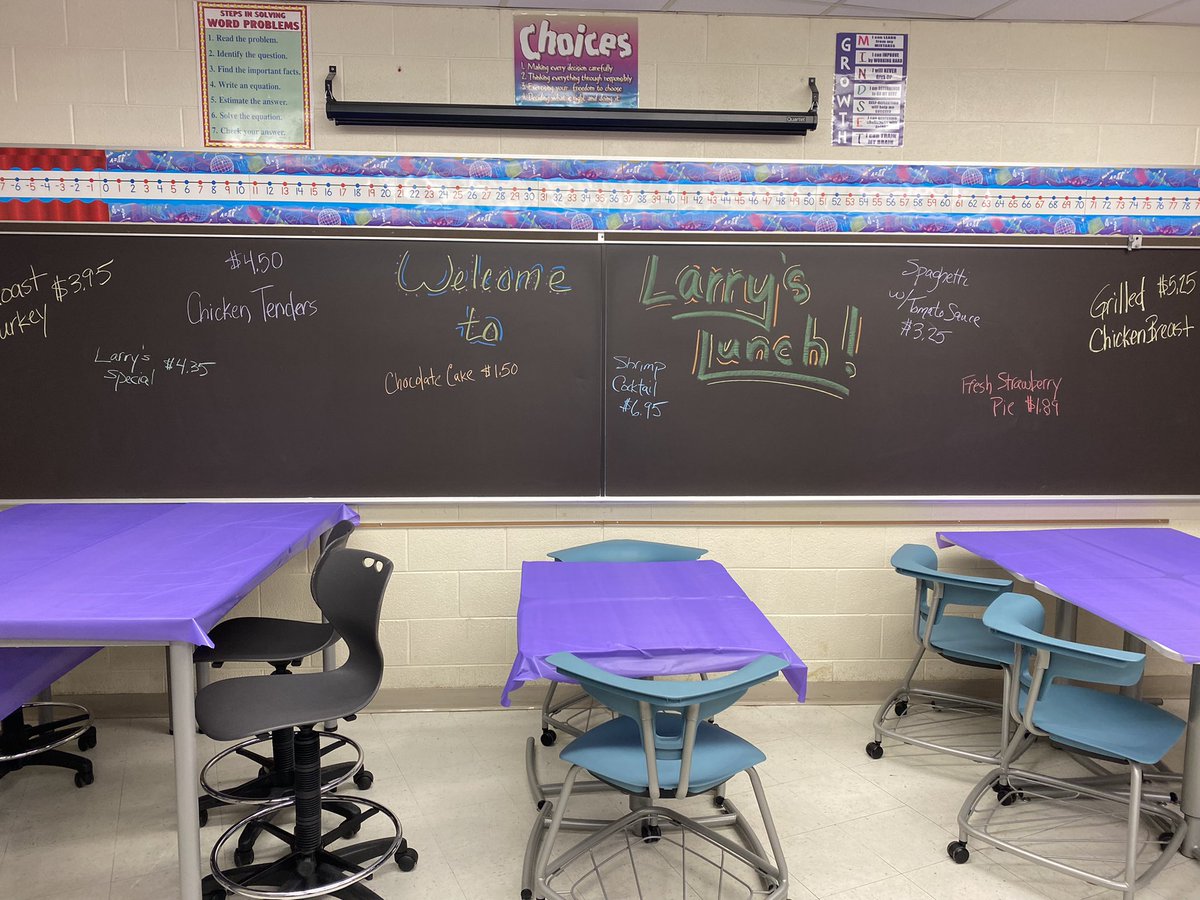 STEPS IN SOLVING
WORD PROBLEMS
1. Read the problem.
2. Identify the question.
3. Find the important facts.
4. Write an equation.
5. Estimate the answer.
6. Solve the equation.
7. Check your answer.
Choices
1. Making every decision carefully
2. Thinking everything through responsibly
3. Exercising your freedom to choose
4. Deciding what is right and doing it
Quartet
GROWTH
MINDSET
I can LEARN
from my
MISTAKES
I can IMPROVE
by WORKING HARD
I will NEVER
GIVE UP
I can TRAIN
MY BRAIN
-7 -6 -5 -4 -3 -2 -1 0 1 2 3 4 5 6 7 8 9 10 11 12 13 14 15 16 17 18 19 20 21 22 23 24 25 26 27 28 29 30 31 32 33 34 35 36 37 38 39 40 41 42 43 44 45 46 47 48 49 50 51 52 53 54 55 56 57 58 59 60 61 62 63 64 65 66 67 68 69 70 71 72 73 74 75 76 77 78
$3.95
$4.50
Chicken Tenders
Larry's
Special $4.35
Welcome
to
Chocolate Cake $1.50
Larry's
Lunch!
Shrimp
Cocktail
$6.95
Spaghetti
w/Tomato Sauce
$3.25
Fresh Strawberry
Pie $1.89
Grilled $5.25
Chicken Breast